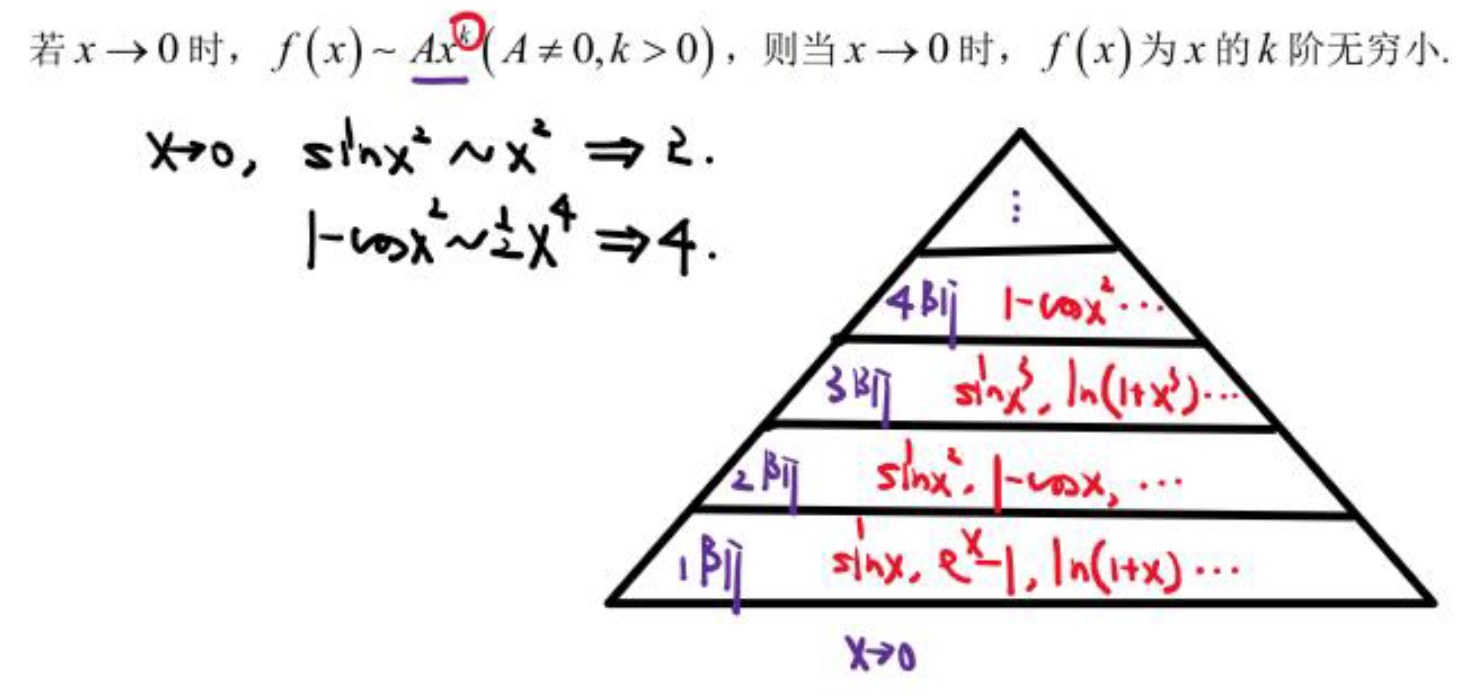 若 x → 0 时， f(x) ~ Ax^k (A ≠ 0, k > 0)，则当 x → 0 时， f(x) 为 x 的 k 阶无穷小.
x→0, sinx² ~ x² ⇒ 2.
1-cosx² ~ ½x⁴ ⇒ 4.
⋮
4阶 1-cosx² ⋯
3阶 sinx³, ln(1+x³) ⋯
2阶 sinx², 1-cosx, ⋯
1阶 sinx, eˣ-1, ln(1+x) ⋯
x→0